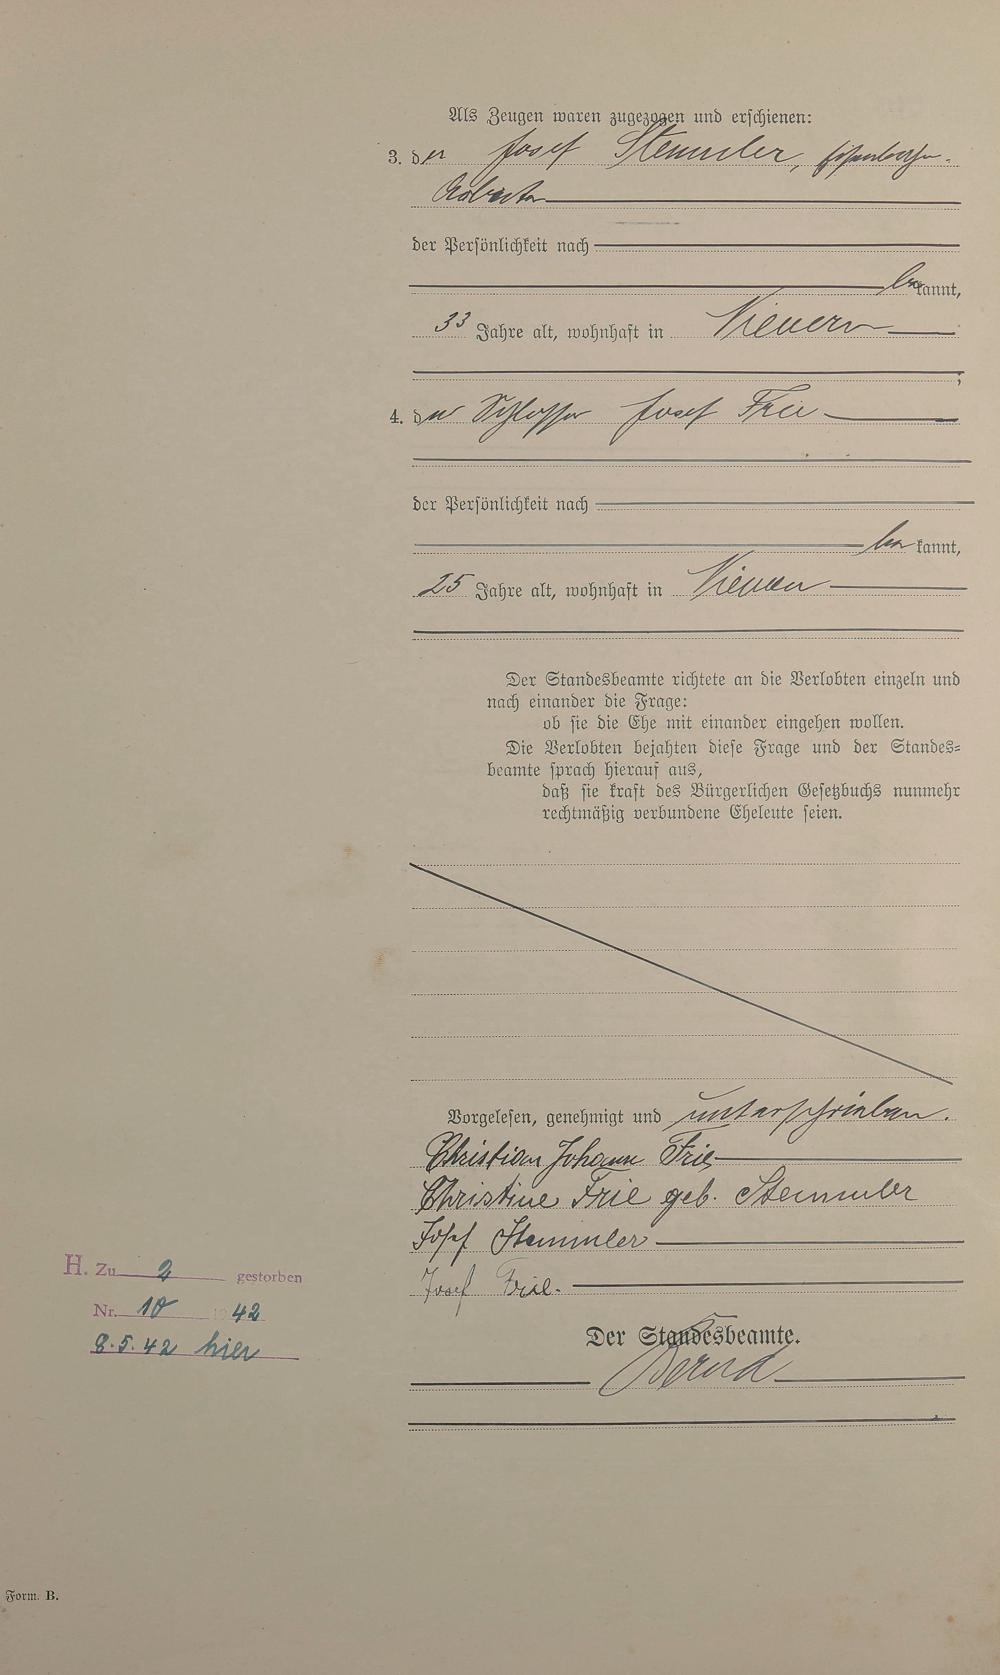 Als Zeugen waren zugezogen und erschienen:
3. der Josef Stemmler, Eisenbahn-
Arbeiter
der Persönlichkeit nach
bekannt,
33 Jahre alt, wohnhaft in Nievern
;
4. der Schlosser Josef Frie
der Persönlichkeit nach
bekannt,
25 Jahre alt, wohnhaft in Nievern
Der Standesbeamte richtete an die Verlobten einzeln und
nach einander die Frage:
ob sie die Ehe mit einander eingehen wollen.
Die Verlobten bejahten diese Frage und der Standes=
beamte sprach hierauf aus,
daß sie kraft des Bürgerlichen Gesetzbuchs nunmehr
rechtmäßig verbundene Eheleute seien.
Vorgelesen, genehmigt und unterschrieben.
Christian Johann Frie
Christine Frie geb. Stemmler
Josef Stemmler
Josef Frie.
H. Zu 2 gestorben
Nr. 10 1942
8.5.42 hier
Der Standesbeamte.
Form. B.